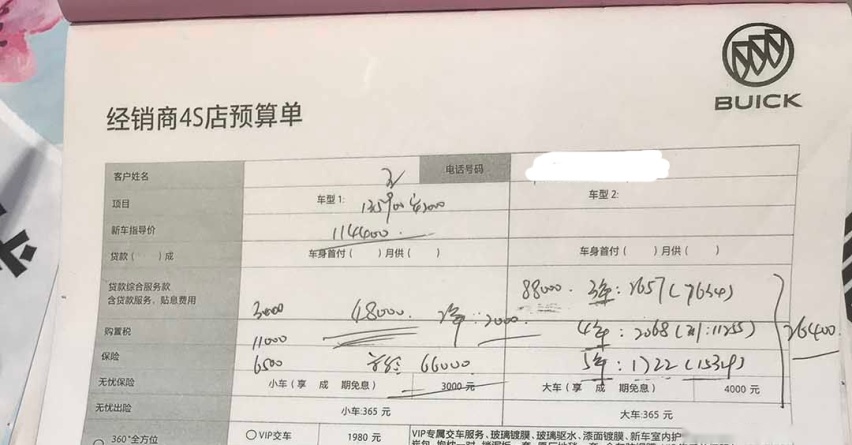 BUICK
经销商4S店预算单
客户姓名 电话号码
项目 车型1: 车型2:
新车指导价 114400
贷款( )成 车身首付( )月供( ) 车身首付( )月供( )
贷款综合服务款
含贷款服务、贴息费用 3000 48000 2年:2000 88000 3年:2657(7654)
购置税 11000 4年:2068(利:11255) 26400
保险 6500 66000 5年:1722(15329)
无忧保险 小车(享 成 期免息) 3000元 大车(享 成 期免息) 4000元
无忧出险 小车:365元 大车:365元
360°全方位 VIP交车 1980元 VIP专属交车服务、玻璃镀膜、玻璃驱水、漆面镀膜、新车室内护